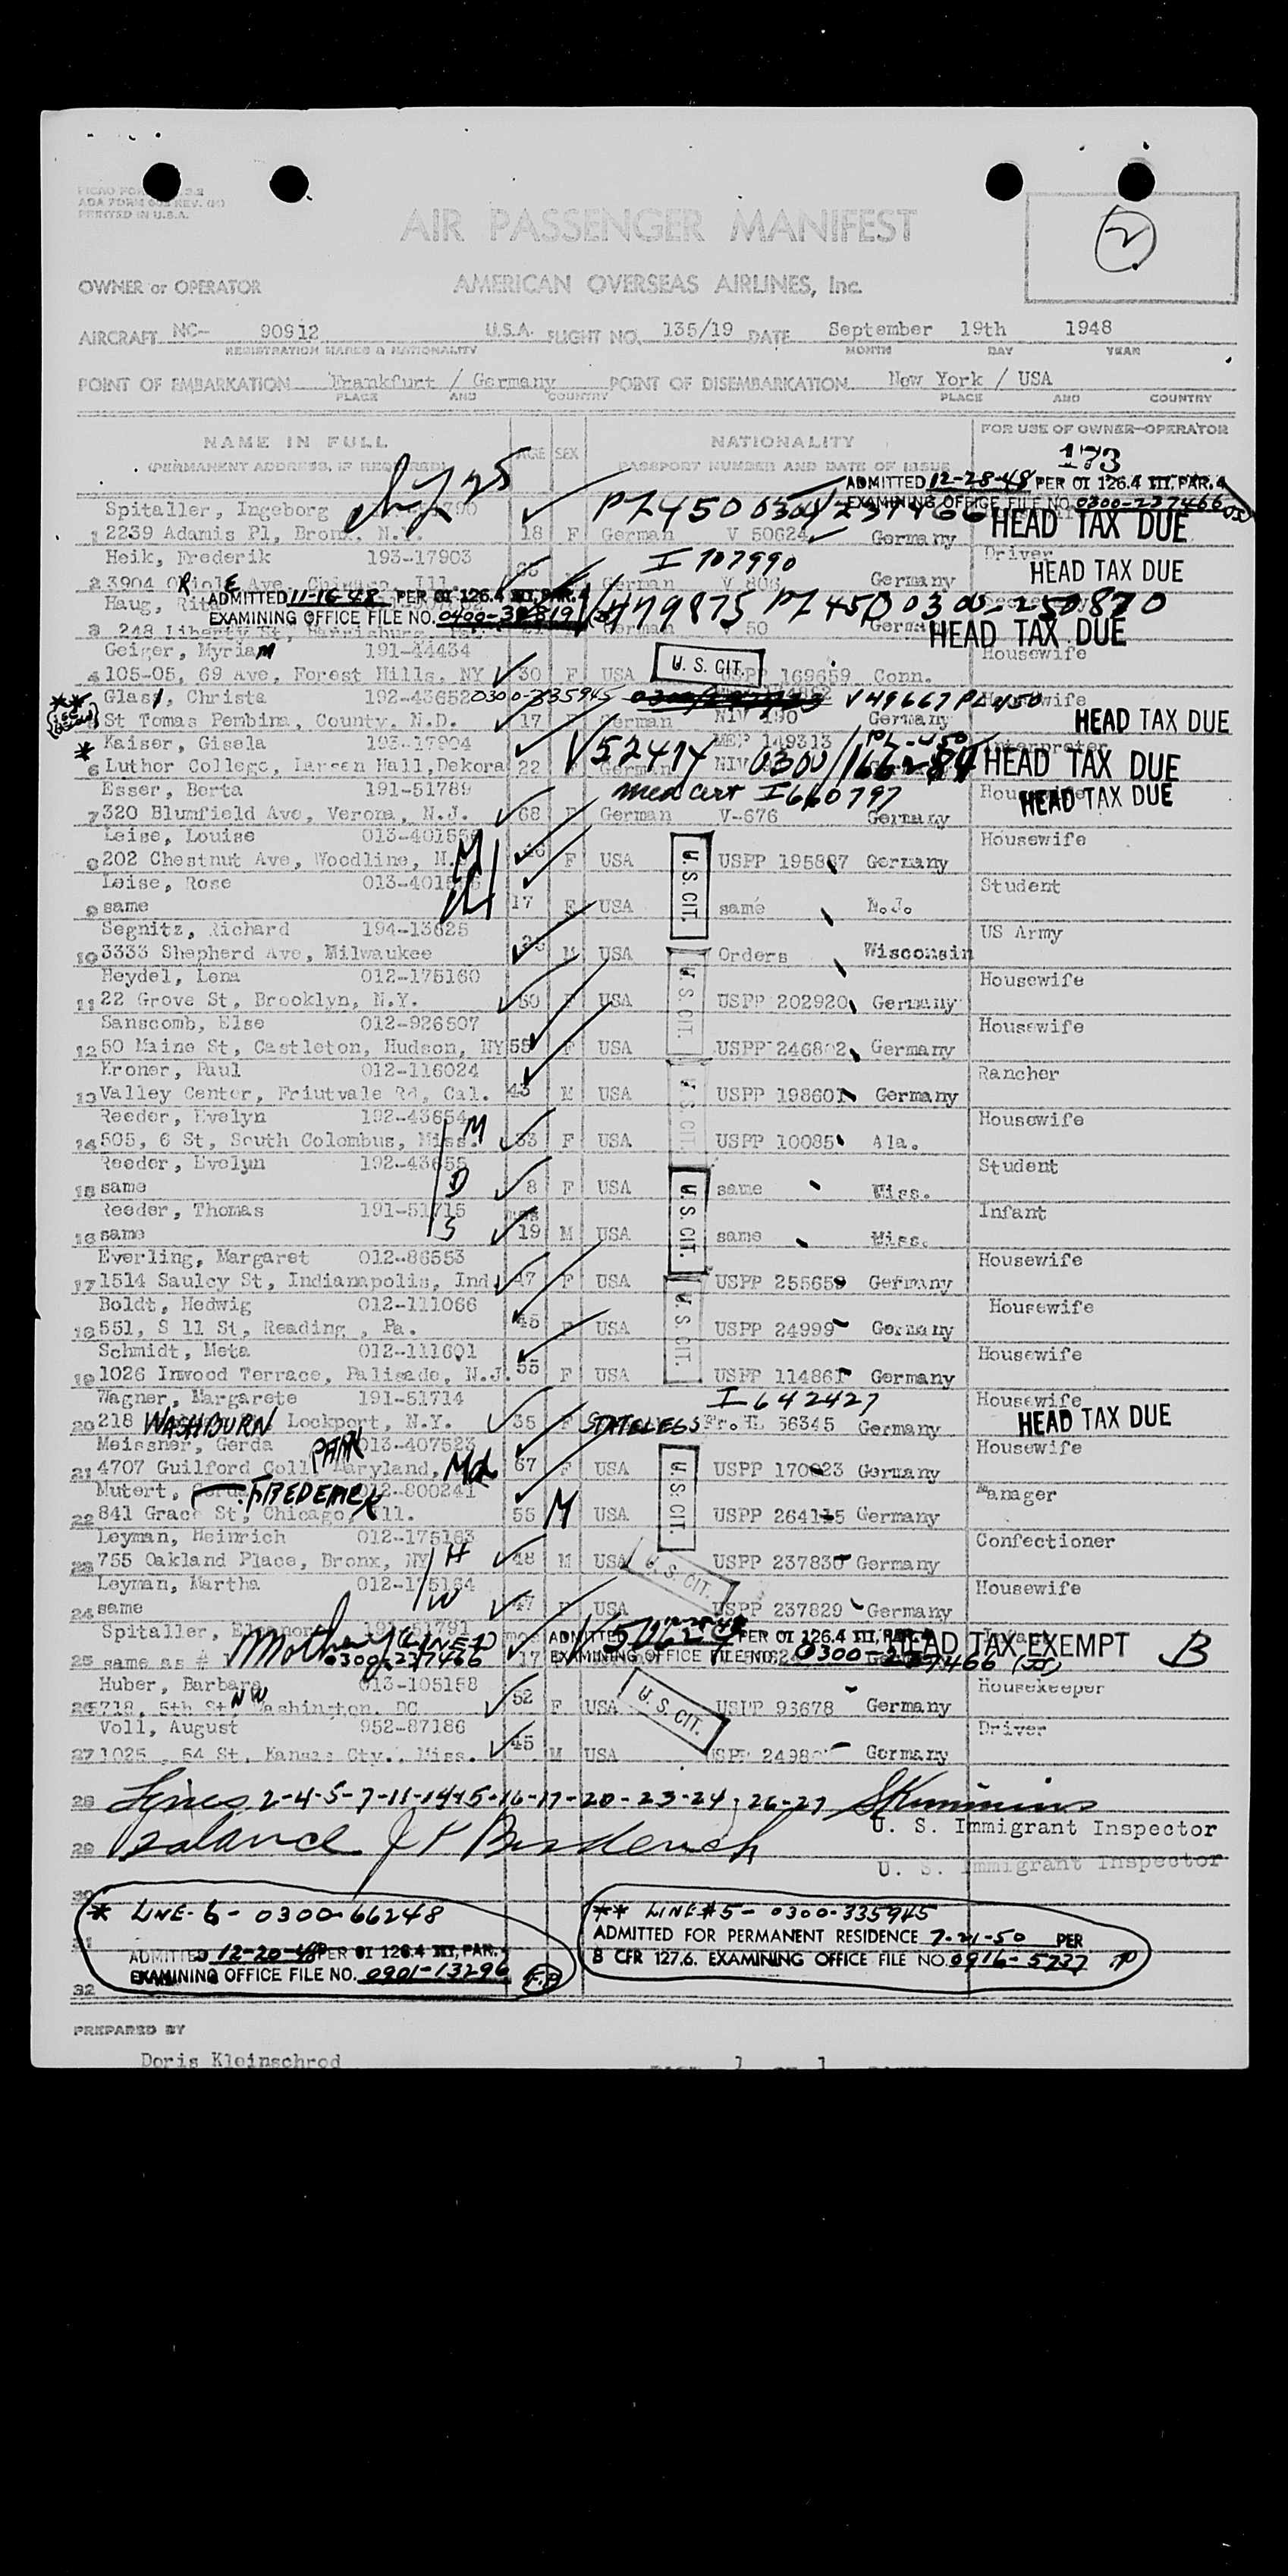 ADA FORM REV.
PRINTED IN U.S.A.
AIR PASSENGER MANIFEST
2
OWNER or OPERATOR AMERICAN OVERSEAS AIRLINES, Inc.
AIRCRAFT NC- 90912 U.S.A. FLIGHT NO. 135/19 DATE September 19th 1948
REGISTRATION MARKS & NATIONALITY MONTH DAY YEAR
POINT OF EMBARKATION Frankfurt / Germany POINT OF DISEMBARKATION New York / USA
PLACE AND COUNTRY PLACE AND COUNTRY
NAME IN FULL AGE SEX NATIONALITY FOR USE OF OWNER-OPERATOR
(PERMANENT ADDRESS, IF REQUIRED) PASSPORT NUMBER AND DATE OF ISSUE 173
ADMITTED 12-28-48 PER OI 126.4 III, PAR. 4
EXAMINING OFFICE FILE NO. 0300-237466
Spitaller, Ingeborg HEAD TAX DUE
1 2239 Adamis Pl, Bronx, N.Y. 18 F German V 50624 Germany
Heik, Frederik 193-17903 I 707990 Driver
2 3904 Ave, Chicago, Ill. German V 808 Germany HEAD TAX DUE
Haug, Rita ADMITTED 11-16-48 PER OI 126.4 III, PAR. 4 V479875 PL 450 0300-250870
EXAMINING OFFICE FILE NO.
3 248 Liberty St, Harrisburg, German V 50 HEAD TAX DUE
Geiger, Myriam 191-44434 U. S. CIT. Housewife
4 105-05, 69 Ave, Forest Hills, NY 30 F USA USPP 169659 Conn.
** Glass, Christa 192-43652 0300-335945 V49667 PL 450
5 St Tomas Pembina, County, N.D. 17 F German NIV 190 Germany HEAD TAX DUE
* Kaiser, Gisela 193-17904 V52474 Interpreter
6 Luther College, Larsen Hall, Dekora 22 German NIV Germany HEAD TAX DUE
Esser, Berta 191-51789 Med cert I660797 Housewife
7 320 Blumfield Ave, Verona, N.J. 68 F German V-676 Germany HEAD TAX DUE
Leise, Louise Housewife
8 202 Chestnut Ave, Woodline, N.J. M 46 F USA U. S. CIT. USPP 195887 Germany
Leise, Rose Student
9 same 17 F USA same N.J.
Segnitz, Richard 194-13625 US Army
10 3333 Shepherd Ave, Milwaukee M USA Orders Wisconsin
Heydel, Lena 012-175160 U. S. CIT. Housewife
11 22 Grove St, Brooklyn, N.Y. 50 F USA USPP 202920 Germany
Sanscomb, Else 012-926507 Housewife
12 50 Maine St, Castleton, Hudson, NY 55 F USA USPP 246802 Germany
Kroner, Paul 012-116024 U. S. CIT. Rancher
13 Valley Center, Friutvale Rd, Cal. 43 M USA USPP 198601 Germany
Reeder, Evelyn 192-43654 Housewife
14 505, 6 St, South Colombus, Miss. M 33 F USA USPP 10085 Ala.
Reeder, Evelyn 192-43655 Student
15 same D 8 F USA U. S. CIT. same Miss.
Reeder, Thomas 191-51715 mos Infant
16 same S 19 M USA same Miss.
Everling, Margaret 012-86553 Housewife
17 1514 Saulcy St, Indianapolis, Ind. 47 F USA USPP 255659 Germany
Boldt, Hedwig 012-111066 U. S. CIT. Housewife
18 551, S 11 St, Reading, Pa. 45 F USA USPP 24999 Germany
Schmidt, Meta 012-111601 Housewife
19 1026 Inwood Terrace, Palisade, N.J. 55 F USA USPP 114861 Germany
Wagner, Margarete 191-51714 I 642427 Housewife
20 218 WASHBURN Lockport, N.Y. 35 F STATELESS Germany HEAD TAX DUE
Meissner, Gerda 013-407523 Housewife
21 4707 Guilford Coll PARK Maryland, Md 67 F USA U. S. CIT. USPP 170823 Germany
Mutert, FREDERICK 012-800241 Manager
22 841 Grace St, Chicago, Ill. 56 M USA USPP 264115 Germany
Leyman, Heinrich 012-175163 Confectioner
23 755 Oakland Place, Bronx, NY H 48 M USA U. S. CIT. USPP 237830 Germany
Leyman, Martha 012-175164 Housewife
24 same W 47 F USA USPP 237829 Germany
Spitaller, Eleanor 191-51791 mos ADMITTED PER OI 126.4 III, PAR. HEAD TAX EXEMPT B
25 same as # 1 Mother 0300-237466 17 EXAMINING OFFICE FILE NO. 0300-237466
Huber, Barbara 013-105158 Housekeeper
26 718, 5th St, NW Washington, DC 52 F USA U. S. CIT. USPP 93678 Germany
Voll, August 952-87186 Driver
27 1025, 54 St, Kansas Cty., Miss. 45 M USA Germany
28 Lines 2-4-5-7-11-14-15-16-17-20-23-24-26-27
U. S. Immigrant Inspector
29 Balance
U. S. Immigrant Inspector
30
* LINE-6- 0300-66248 ** LINE #5- 0300-335945
31 ADMITTED FOR PERMANENT RESIDENCE 7-21-50 PER
ADMITTED 12-20-48 PER OI 126.4 III, PAR. 4 8 CFR 127.6. EXAMINING OFFICE FILE NO. 0916-5737
EXAMINING OFFICE FILE NO. 0901-13296 F.B
32
PREPARED BY
Doris Kleinschrod